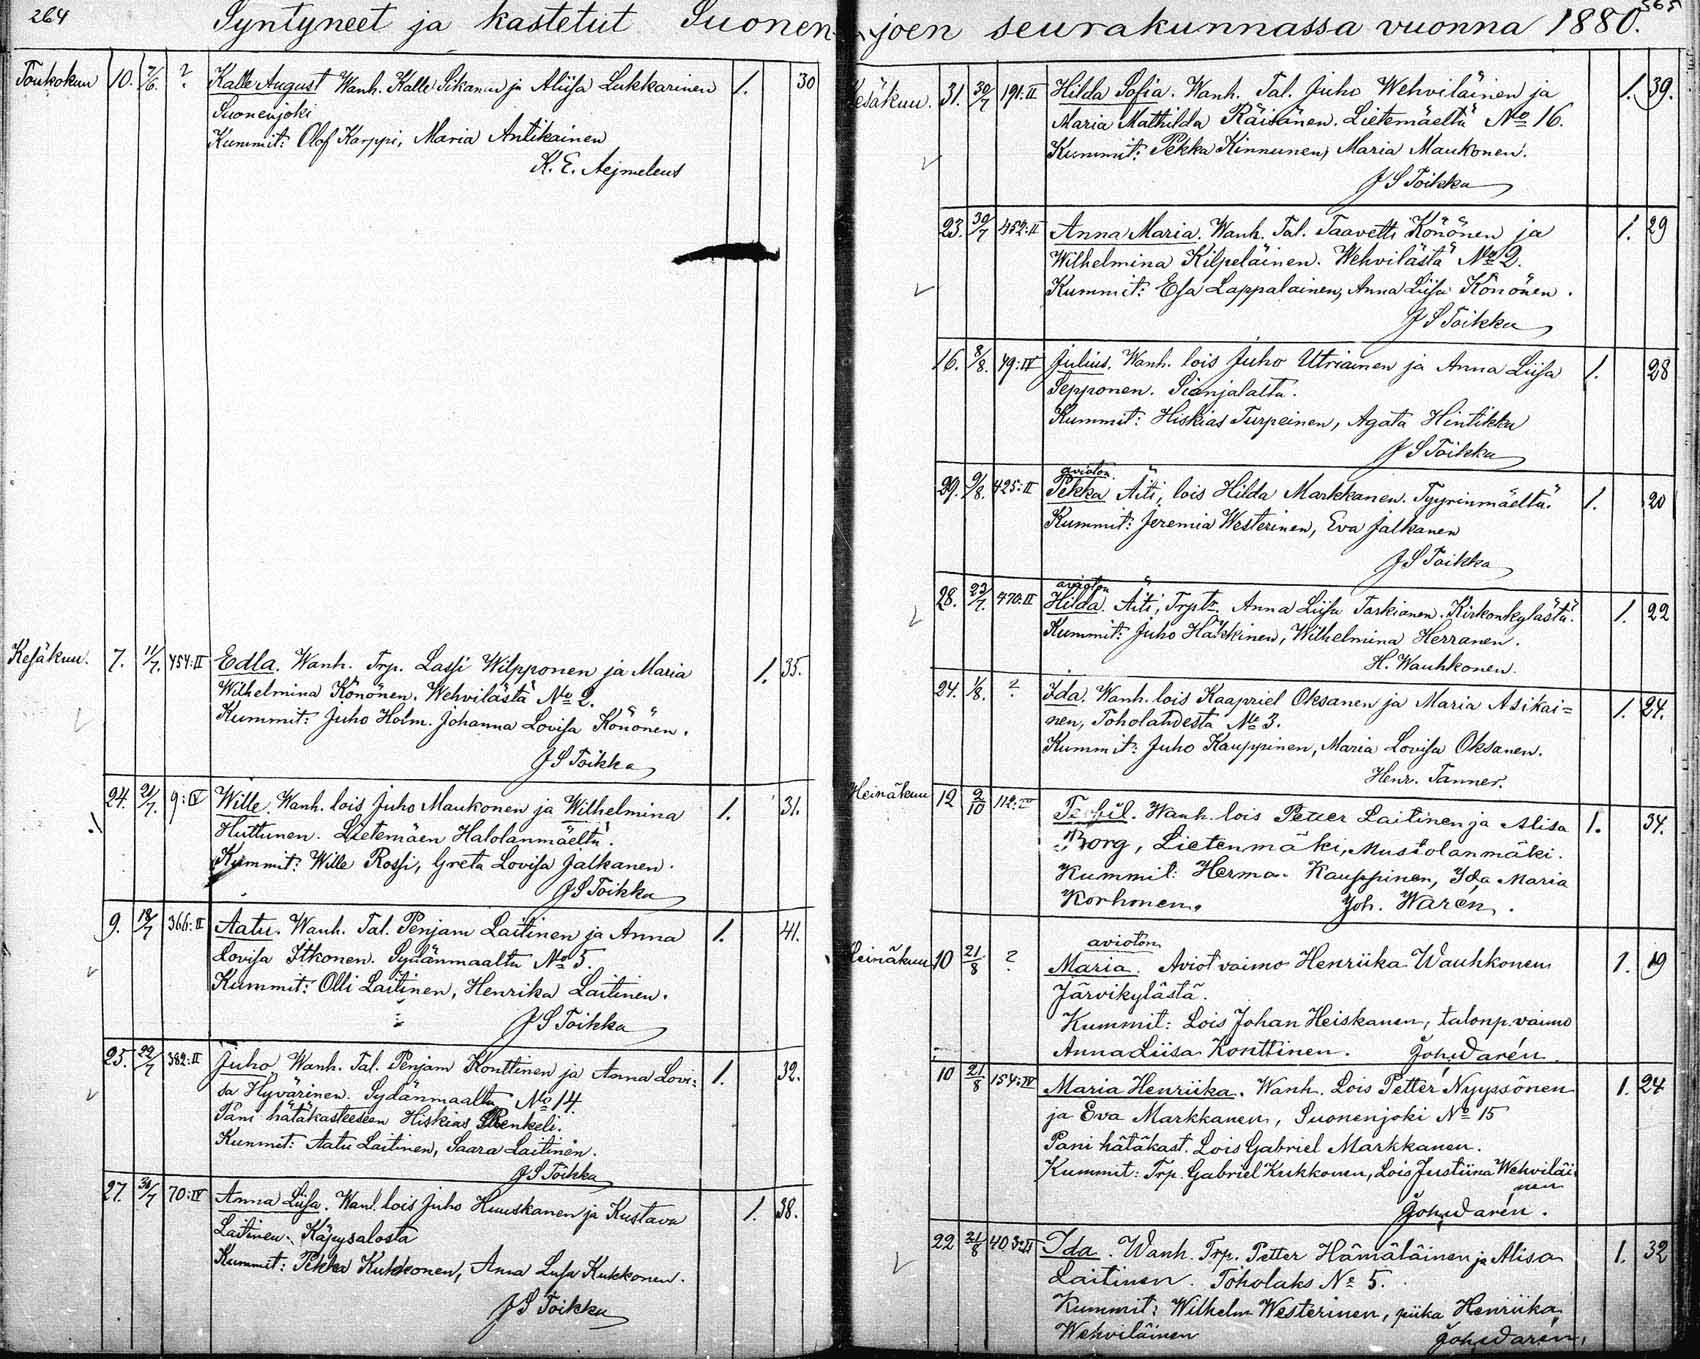 264
Syntyneet ja kastetut Suonen-
Toukokuu 10. 7/6. ? Kalle August Wanh. Kalle Sikanen ja Aliisa Lukkarinen 1. 30
Suonenjoki
Kummit: Olof Karppi, Maria Antikainen
K. E. Aejmeleus
Kesäkuu. 7. 11/7. 454:II Edla. Wanh. Trp. Lassi Wilpponen ja Maria 1. 35.
Wilhelmina Könönen. Wehvilästä No 2.
Kummit: Juho Holm. Johanna Lovisa Könönen.
J S Toikka
24. 21/7. 9:IV Wille. Wanh. lois Juho Maukonen ja Wilhelmina 1. 31.
Huttunen. Lietemäen Halolanmäeltä.
Kummit: Wille Rossi, Greta Lovisa Jalkanen.
J S Toikka
9. 18/7 366:II Aatu. Wanh. Tal. Penjam Laitinen ja Anna 1. 41.
Lovisa Itkonen. Sydänmaalta No 5.
Kummit: Olli Laitinen, Henrika Laitinen.
J S Toikka
25. 22/7 382:II Juho Wanh. Tal. Penjam Konttinen ja Anna Lovi- 1. 32.
sa Hyvärinen. Sydänmaalta No 14.
Pani hätäkasteeseen Hiskias Renkeli.
Kummit: Aatu Laitinen, Saara Laitinen.
J S Toikka
27. 30/7 70:IV Anna Liisa. Wanh. lois Juho Huuskanen ja Kustava 1. 38.
Laitinen. Käpysalosta
Kummit: Pekka Kukkonen, Anna Liisa Kukkonen.
J S Toikka
565
joen seurakunnassa vuonna 1880.
Kesäkuu. 31. 30/7 191:II Hilda Sofia. Wanh. Tal. Juho Wehviläinen ja 1. 39.
Maria Mathilda Räisänen. Lietemäeltä No 16.
Kummit: Pekka Kinnunen, Maria Maukonen.
J S Toikka
23. 30/7 452:II Anna Maria. Wanh. Tal. Taavetti Könönen ja 1. 29
Wilhelmina Kilpeläinen. Wehvilästä No 2.
Kummit: Esa Lappalainen, Anna Liisa Könönen.
J S Toikka
16. 8/8. 49:IV Julius. Wanh. lois Juho Utriainen ja Anna Liisa 1. 28
Sepponen. Sianjalalta.
Kummit: Hiskias Turpeinen, Agata Hintikka
J S Toikka
avioton
29. 9/8. 425:II Pekka Äiti, lois Hilda Markkanen. Tyyrinmäeltä. 1. 20
Kummit: Jeremia Westerinen, Eva Jalkanen
J S Toikka
avioton
28. 23/7. 470:II Hilda. Äiti, Trptr. Anna Liisa Taskianen. Kirkonkylästä. 1. 22
Kummit: Juho Häkkinen, Wilhelmina Herranen.
H. Wauhkonen.
24. 1/8. ? Ida. Wanh. lois Kaapriel Oksanen ja Maria Asikai= 1. 24.
nen, Toholahdesta No 3.
Kummit: Juho Kauppinen, Maria Lovisa Oksanen.
Henr. Tanner.
Heinäkuu 12 9/10 Wanh. lois Petter Laitinen ja Alisa 1. 34.
Borg, Lietenmäki, Mustolanmäki.
Kummit: Herma. Kauppinen, Ida Maria
Korhonen. Joh. Warén.
avioton
Heinäkuu 10 21/8 ? Maria. Aviot vaimo Henriika Wauhkonen 1. 19
Järvikylästä.
Kummit: Lois Johan Heiskanen, talonp. vaimo
Anna Liisa Konttinen. Joh. Warén.
10 21/8 154:IV Maria Henriika. Wanh. Lois Petter Nyyssönen 1. 24
ja Eva Markkanen, Suonenjoki No 15
Pani hätäkast. Lois Gabriel Markkanen.
Kummit: Trp. Gabriel Kukkonen, Lois Justiina Wehviläi-
nen
Joh. Warén.
22 21/8 403:II Ida. Wanh. Trp. Petter Hämäläinen ja Alisa 1. 32
Laitinen. Toholaks No 5.
Kummit: Wilhelm Westerinen, piika Henriika
Wehviläinen Joh. Warén.